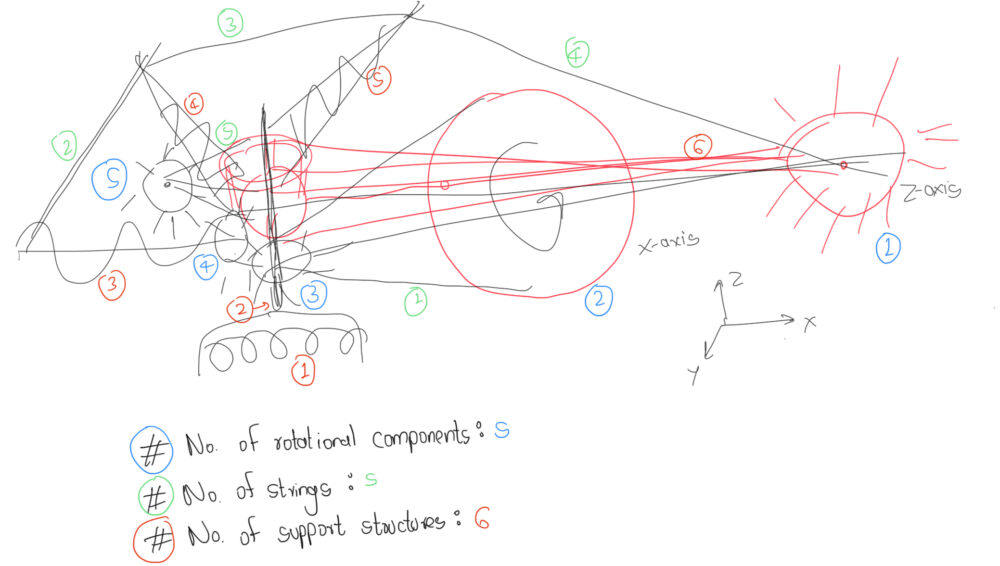 3
4
5
4
2
5
6
5
Z-axis
X-axis
1
4
3
3
1
2
2
Z
X
Y
1
# No. of rotational components: 5
# No. of strings: 5
# No. of support structures: 6